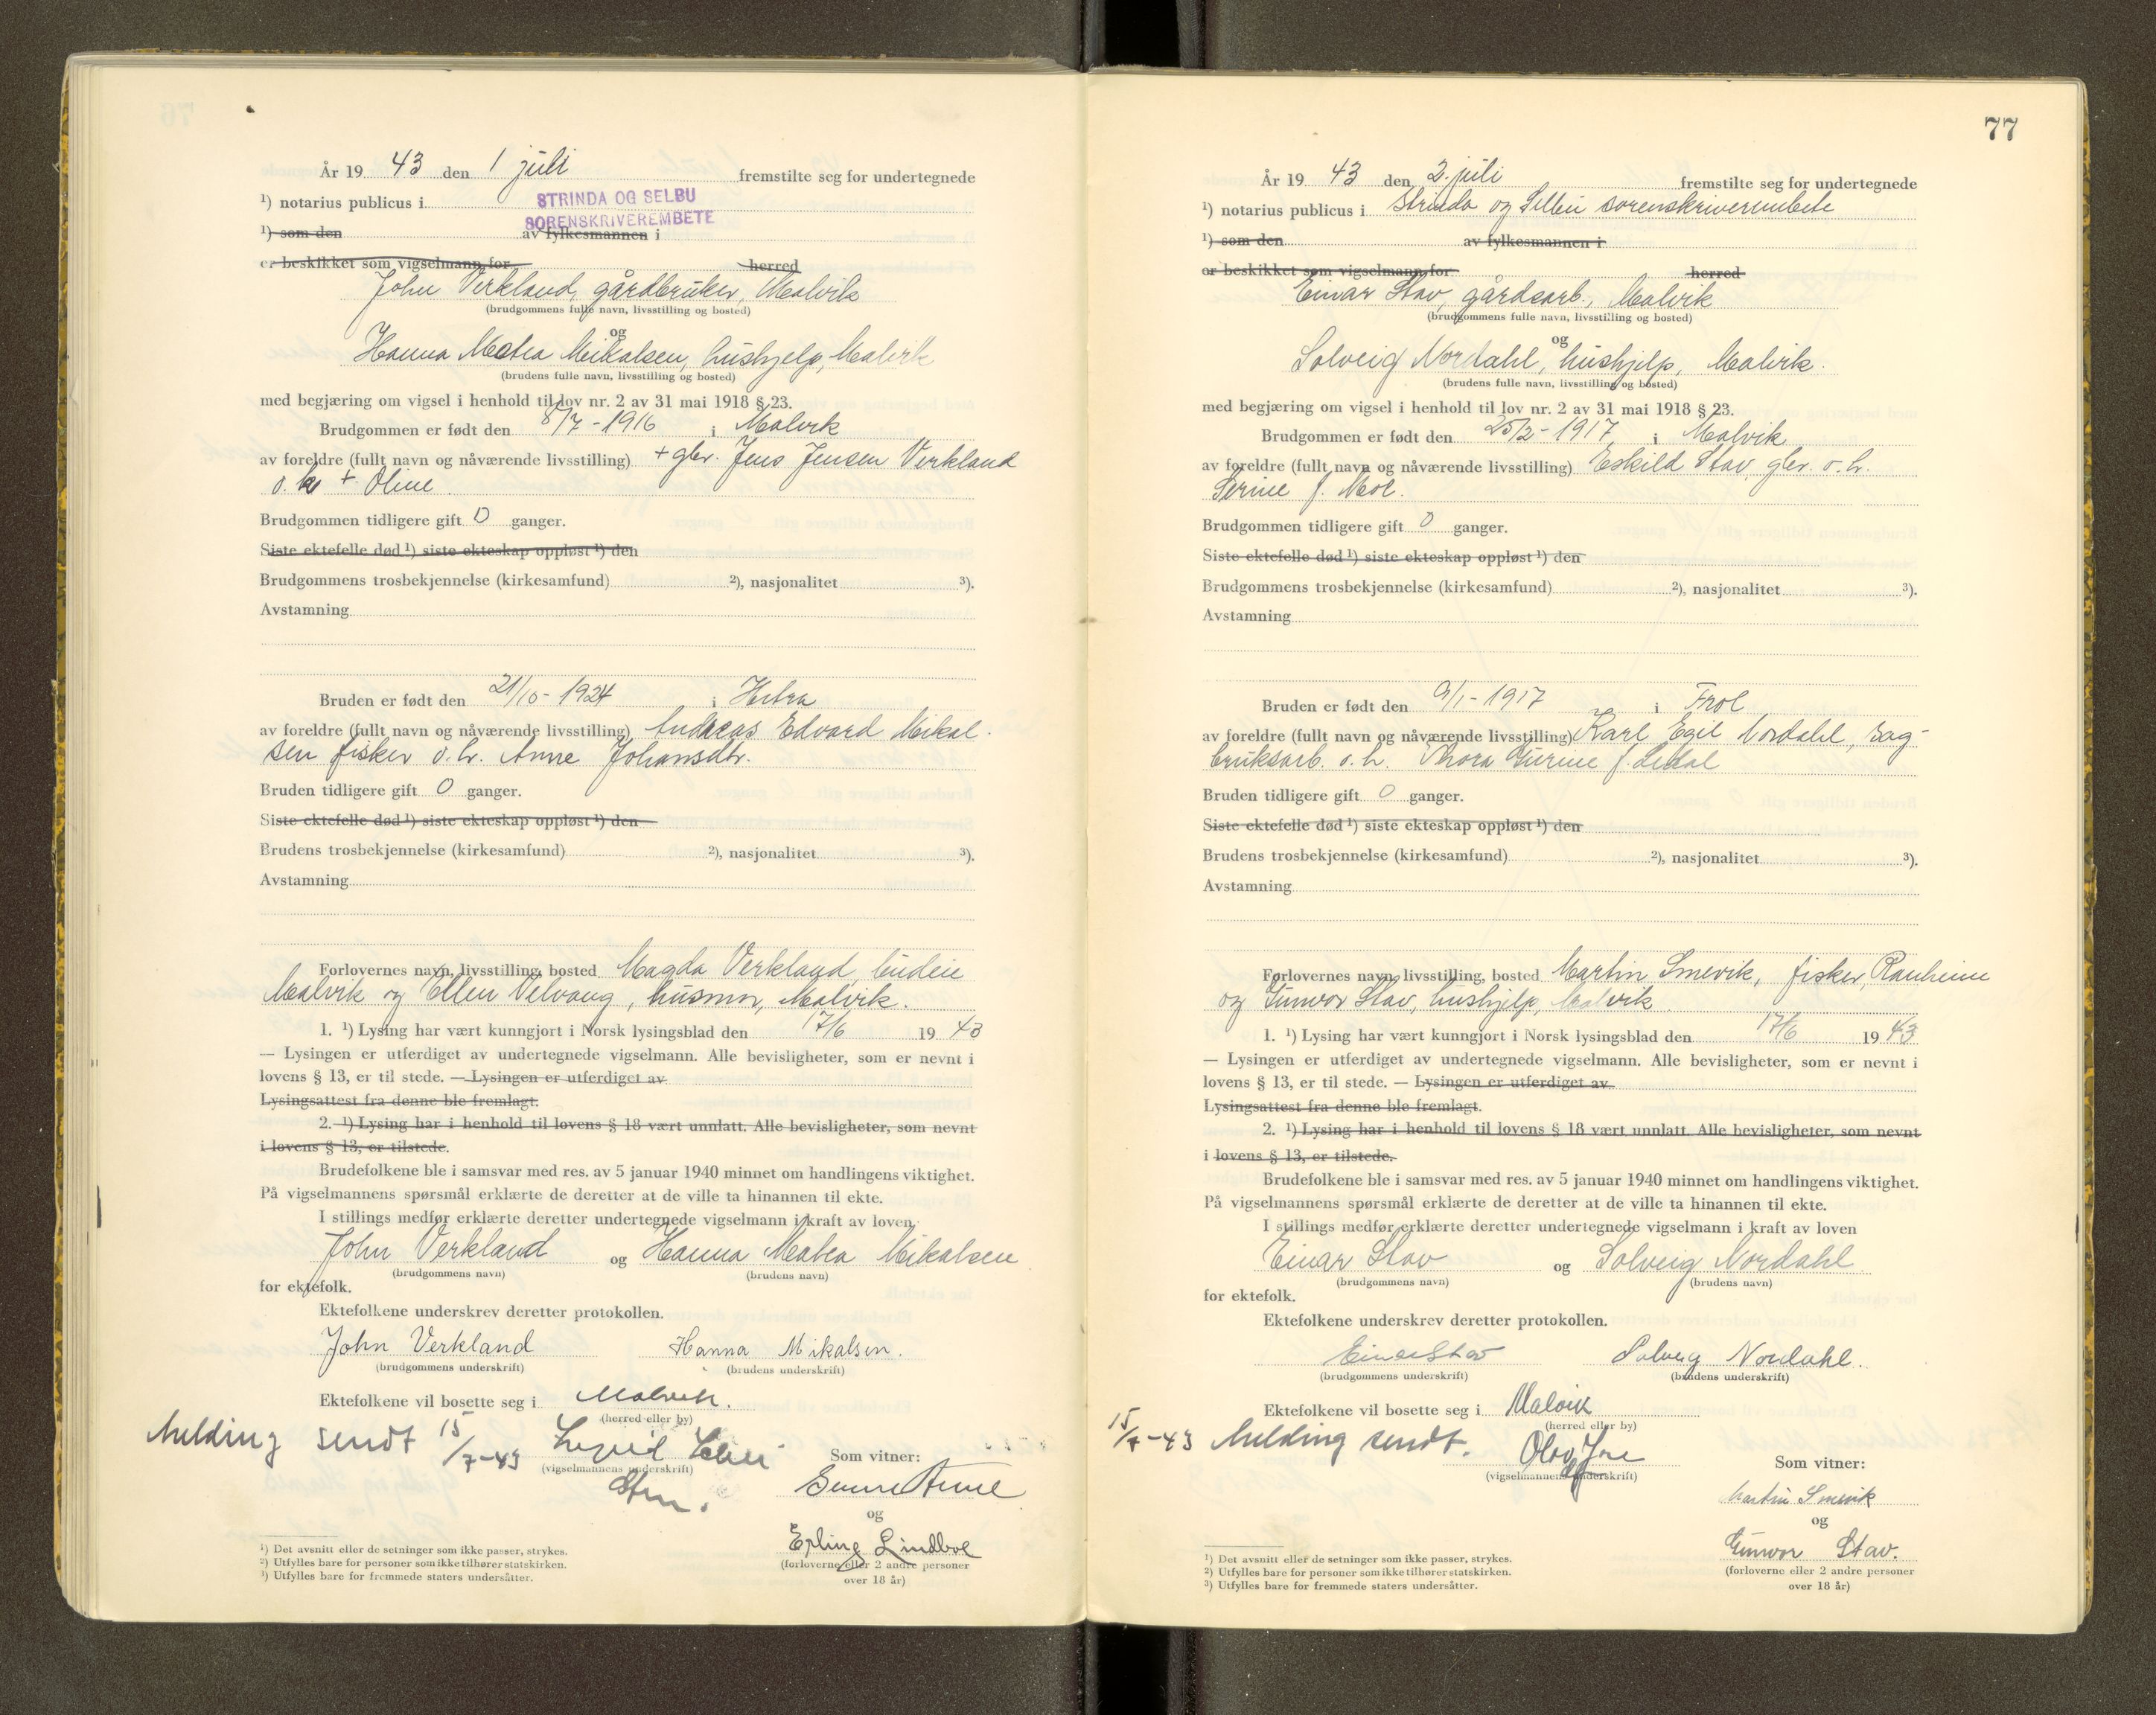 År 19 43 den 1 juli fremstilte seg for undertegnede
¹) notarius publicus i STRINDA OG SELBU
SORENSKRIVEREMBETE
¹) som den av fylkesmannen i
er beskikket som vigselmann for herred
John Verkland, gårdbruker, Malvik
(brudgommens fulle navn, livsstilling og bosted)
og
Hanna Matea Mikalsen, hushjelp, Malvik
(brudens fulle navn, livsstilling og bosted)
med begjæring om vigsel i henhold til lov nr. 2 av 31 mai 1918 § 23.
Brudgommen er født den 8/7 - 1916 i Malvik
av foreldre (fullt navn og nåværende livsstilling) + gbr. Jens Jensen Verkland
o. h. + Oline.
Brudgommen tidligere gift 0 ganger.
Siste ektefelle død ¹) siste ekteskap oppløst ¹) den
Brudgommens trosbekjennelse (kirkesamfund) ²), nasjonalitet ³).
Avstamning
Bruden er født den 21/10 - 1924 i Hitra
av foreldre (fullt navn og nåværende livsstilling) Andreas Edvard Mikal-
sen fisker o. h. Anne Johansdtr.
Bruden tidligere gift 0 ganger.
Siste ektefelle død ¹) siste ekteskap oppløst ¹) den
Brudens trosbekjennelse (kirkesamfund) ²), nasjonalitet ³).
Avstamning
Forlovernes navn, livsstilling, bosted Magda Verkland, budeie
Malvik og Ellen Velvang, husmor, Malvik.
1. ¹) Lysing har vært kunngjort i Norsk lysingsblad den 17/6 19 43
— Lysingen er utferdiget av undertegnede vigselmann. Alle bevisligheter, som er nevnt i
lovens § 13, er til stede. — Lysingen er utferdiget av
Lysingsattest fra denne ble fremlagt.
2. ¹) Lysing har i henhold til lovens § 18 vært unnlatt. Alle bevisligheter, som nevnt
i lovens § 13, er tilstede.
Brudefolkene ble i samsvar med res. av 5 januar 1940 minnet om handlingens viktighet.
På vigselmannens spørsmål erklærte de deretter at de ville ta hinannen til ekte.
I stillings medfør erklærte deretter undertegnede vigselmann i kraft av loven
John Verkland og Hanna Matea Mikalsen
(brudgommens navn) (brudens navn)
for ektefolk.
Ektefolkene underskrev deretter protokollen.
John Verkland Hanna Mikalsen.
(brudgommens underskrift) (brudens underskrift)
Ektefolkene vil bosette seg i Malvik.
(herred eller by)
Melding sendt 15/7-43
(vigselmannens underskrift)
Som vitner:
og
Erling Lindboe
(forloverne eller 2 andre personer
over 18 år)
¹) Det avsnitt eller de setninger som ikke passer, strykes.
²) Utfylles bare for personer som ikke tilhører statskirken.
³) Utfylles bare for fremmede staters undersåtter.
77
År 19 43 den 2. juli fremstilte seg for undertegnede
¹) notarius publicus i Strinda og Selbu sorenskriverembete
¹) som den av fylkesmannen i
er beskikket som vigselmann for herred
Einar Stav, gårdsarb., Malvik
(brudgommens fulle navn, livsstilling og bosted)
og
Solveig Nordahl, hushjelp, Malvik.
(brudens fulle navn, livsstilling og bosted)
med begjæring om vigsel i henhold til lov nr. 2 av 31 mai 1918 § 23.
Brudgommen er født den 25/2 - 1917 i Malvik
av foreldre (fullt navn og nåværende livsstilling) Eskild Stav, gbr. o. h.
Serine f. Moe.
Brudgommen tidligere gift 0 ganger.
Siste ektefelle død ¹) siste ekteskap oppløst ¹) den
Brudgommens trosbekjennelse (kirkesamfund) ²), nasjonalitet ³).
Avstamning
Bruden er født den 9/1 - 1917 i Frol
av foreldre (fullt navn og nåværende livsstilling) Karl Egil Nordahl, sag-
bruksarb. o. h. Thora Gurine f.
Bruden tidligere gift 0 ganger.
Siste ektefelle død ¹) siste ekteskap oppløst ¹) den
Brudens trosbekjennelse (kirkesamfund) ²), nasjonalitet ³).
Avstamning
Forlovernes navn, livsstilling, bosted Martin Smevik, fisker, Ranheim
og Gunvor Stav, hushjelp, Malvik
1. ¹) Lysing har vært kunngjort i Norsk lysingsblad den 17/6 19 43
— Lysingen er utferdiget av undertegnede vigselmann. Alle bevisligheter, som er nevnt i
lovens § 13, er til stede. — Lysingen er utferdiget av
Lysingsattest fra denne ble fremlagt.
2. ¹) Lysing har i henhold til lovens § 18 vært unnlatt. Alle bevisligheter, som nevnt
i lovens § 13, er tilstede.
Brudefolkene ble i samsvar med res. av 5 januar 1940 minnet om handlingens viktighet.
På vigselmannens spørsmål erklærte de deretter at de ville ta hinannen til ekte.
I stillings medfør erklærte deretter undertegnede vigselmann i kraft av loven
Einar Stav og Solveig Nordahl
(brudgommens navn) (brudens navn)
for ektefolk.
Ektefolkene underskrev deretter protokollen.
Einar Stav Solveig Nordahl.
(brudgommens underskrift) (brudens underskrift)
Ektefolkene vil bosette seg i Malvik
(herred eller by)
15/7-43 Melding sendt.
(vigselmannens underskrift)
Som vitner:
Martin Smevik
og
Gunvor Stav.
(forloverne eller 2 andre personer
over 18 år)
¹) Det avsnitt eller de setninger som ikke passer, strykes.
²) Utfylles bare for personer som ikke tilhører statskirken.
³) Utfylles bare for fremmede staters undersåtter.